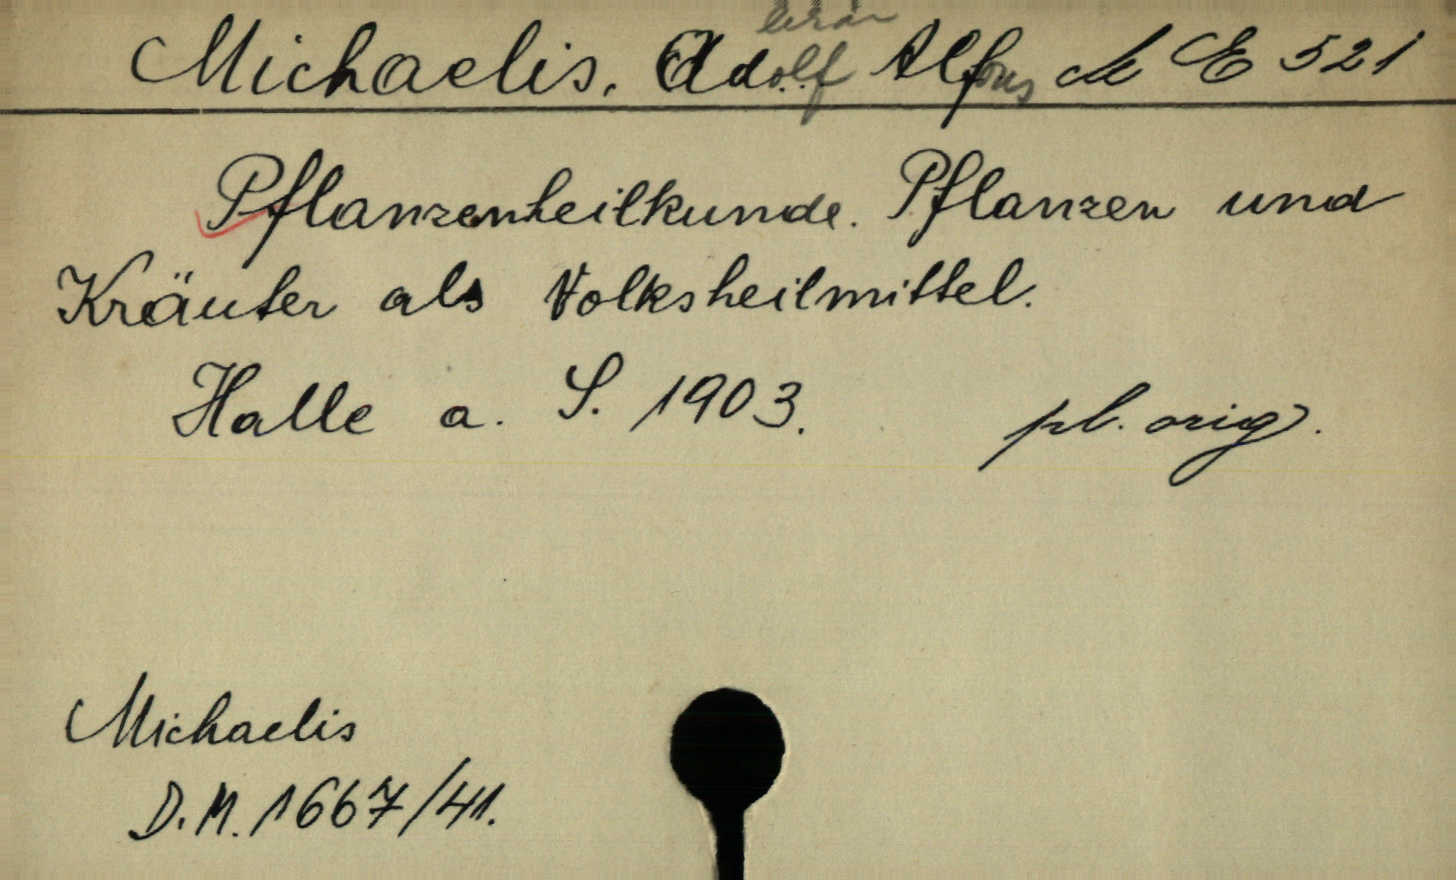 Michaelis, Adolf Alfons E 521
Pflanzenheilkunde. Pflanzen und
Kräuter als Volksheilmittel.
Halle a. S. 1903. pl. orig.
Michaelis
D.M. 1667/41.